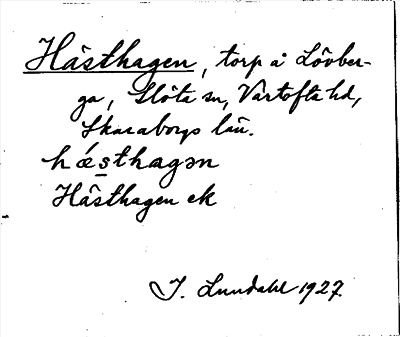 Hästhagen, torp å Lövber-
ga, Slöta sn, Vartofta hd,
Skaraborgs län.
hǽsthagən
Hästhagen ek
J. Lundahl 1927.